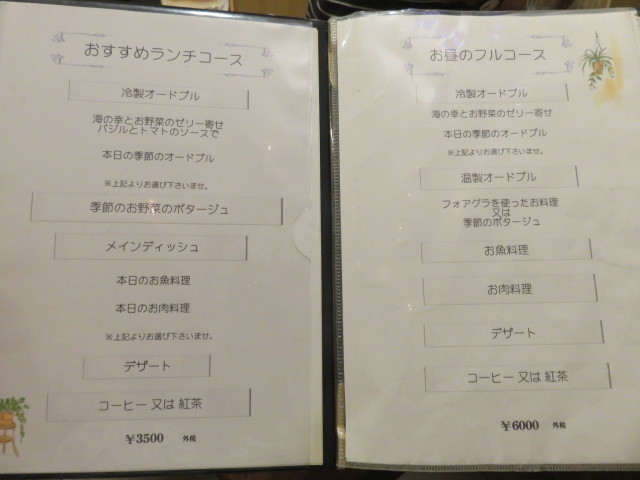 おすすめランチコース
冷製オードブル
海の幸とお野菜のゼリー寄せ
バジルとトマトのソースで
本日の季節のオードブル
※上記よりお選び下さいませ。
季節のお野菜のポタージュ
メインディッシュ
本日のお魚料理
本日のお肉料理
※上記よりお選び下さいませ。
デザート
コーヒー 又は 紅茶
¥3500 外税
お昼のフルコース
冷製オードブル
海の幸とお野菜のゼリー寄せ
本日の季節のオードブル
※上記よりお選び下さいませ。
温製オードブル
フォアグラを使ったお料理
又は
季節のポタージュ
お魚料理
お肉料理
デザート
コーヒー 又は 紅茶
¥6000 外税